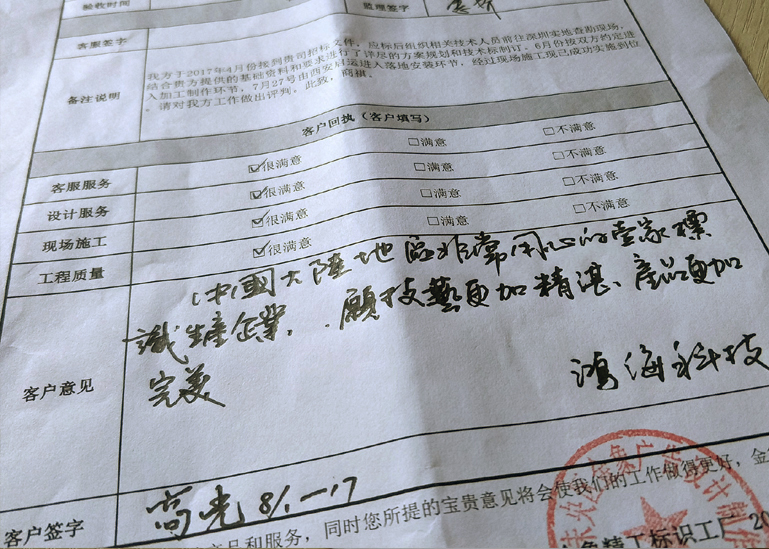 验收时间
监理签字
客服签字
备注说明
我方于2017年4月份找到贵司招标文件，应标后组织相关技术人员前往深圳实地查勘现场，
结合贵方提供的基础资料和要求进行了详尽的方案规划和技术标制订，6月份按双方约定进
入加工制作环节，7月27号由西安启运进入落地安装环节，经过现场施工现已成功实施到位
，请对我方工作做出评判，此致，商祺。
客户回执（客户填写）
客服服务 ☑很满意 □满意 □不满意
设计服务 ☑很满意 □满意 □不满意
现场施工 ☑很满意 □满意 □不满意
工程质量 ☑很满意 □满意 □不满意
客户意见
中國大陸地區非常用心的壹家標
識生產企業，願技藝更加精湛、產品更加
完美
鴻海科技
客户签字
高光 8/.一17
产品和服务，同时您所提的宝贵意见将会使我们的工作做得更好，金
象精工标识工厂 20